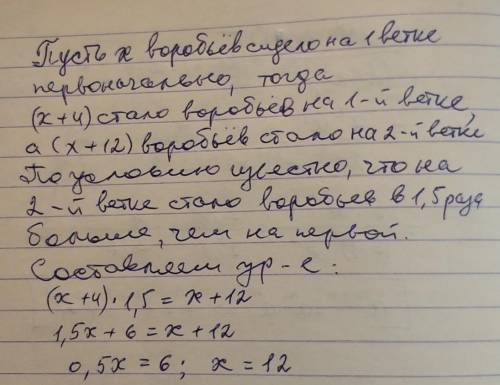 Пусть х воробьёв сидело на 1 ветке
первоначально, тогда
(х+4) стало воробьёв на 1-й ветке,
а (х+12) воробьёв стало на 2-й ветке
По условию известно, что на
2-й ветке стало воробьев в 1,5 раза
больше, чем на первой.
Составляем ур-е:
(х+4)·1,5 = х+12
1,5х + 6 = х + 12
0,5х = 6; х = 12